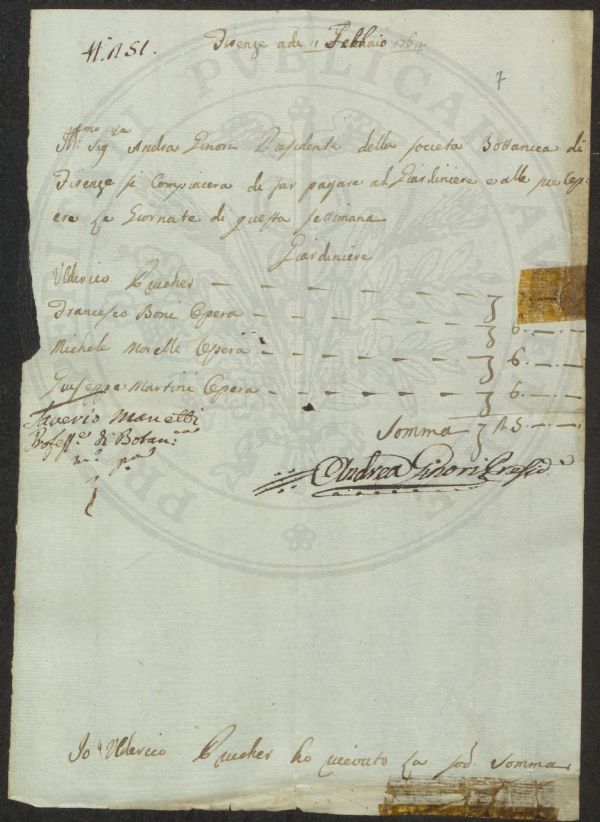 Firenze adi 11 Febbaio 1764
7
Ill.mo Sig.re Andrea Ginori Presidente della società Bottanica di
Firenze si Compiacera di far pagare al Giardiniere e alle sue Oper
ere Le Giornate di questa settimana
Giardiniere
Ulderico Prucher
Francesco Boni Opera 6
Michele Morelli Opera 6
Giuseppe Martini Opera 6
Somma
Saverio Manetti
Profess.e di Botan.ca
Andrea Ginori Presid.e
Io Ulderico Prucher ho ricevuto La sod.a Somma
PUBLICAE